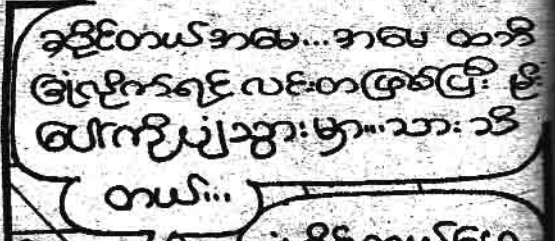 ခုခိုင်တယ်အမေ...အမေ ထဘီ
ခြုံလိုက်ရင် လင်းတဖြစ်ပြီး မိုး
ပေါ်ကိုပျံသွားမှာ...သား သိ
တယ်...